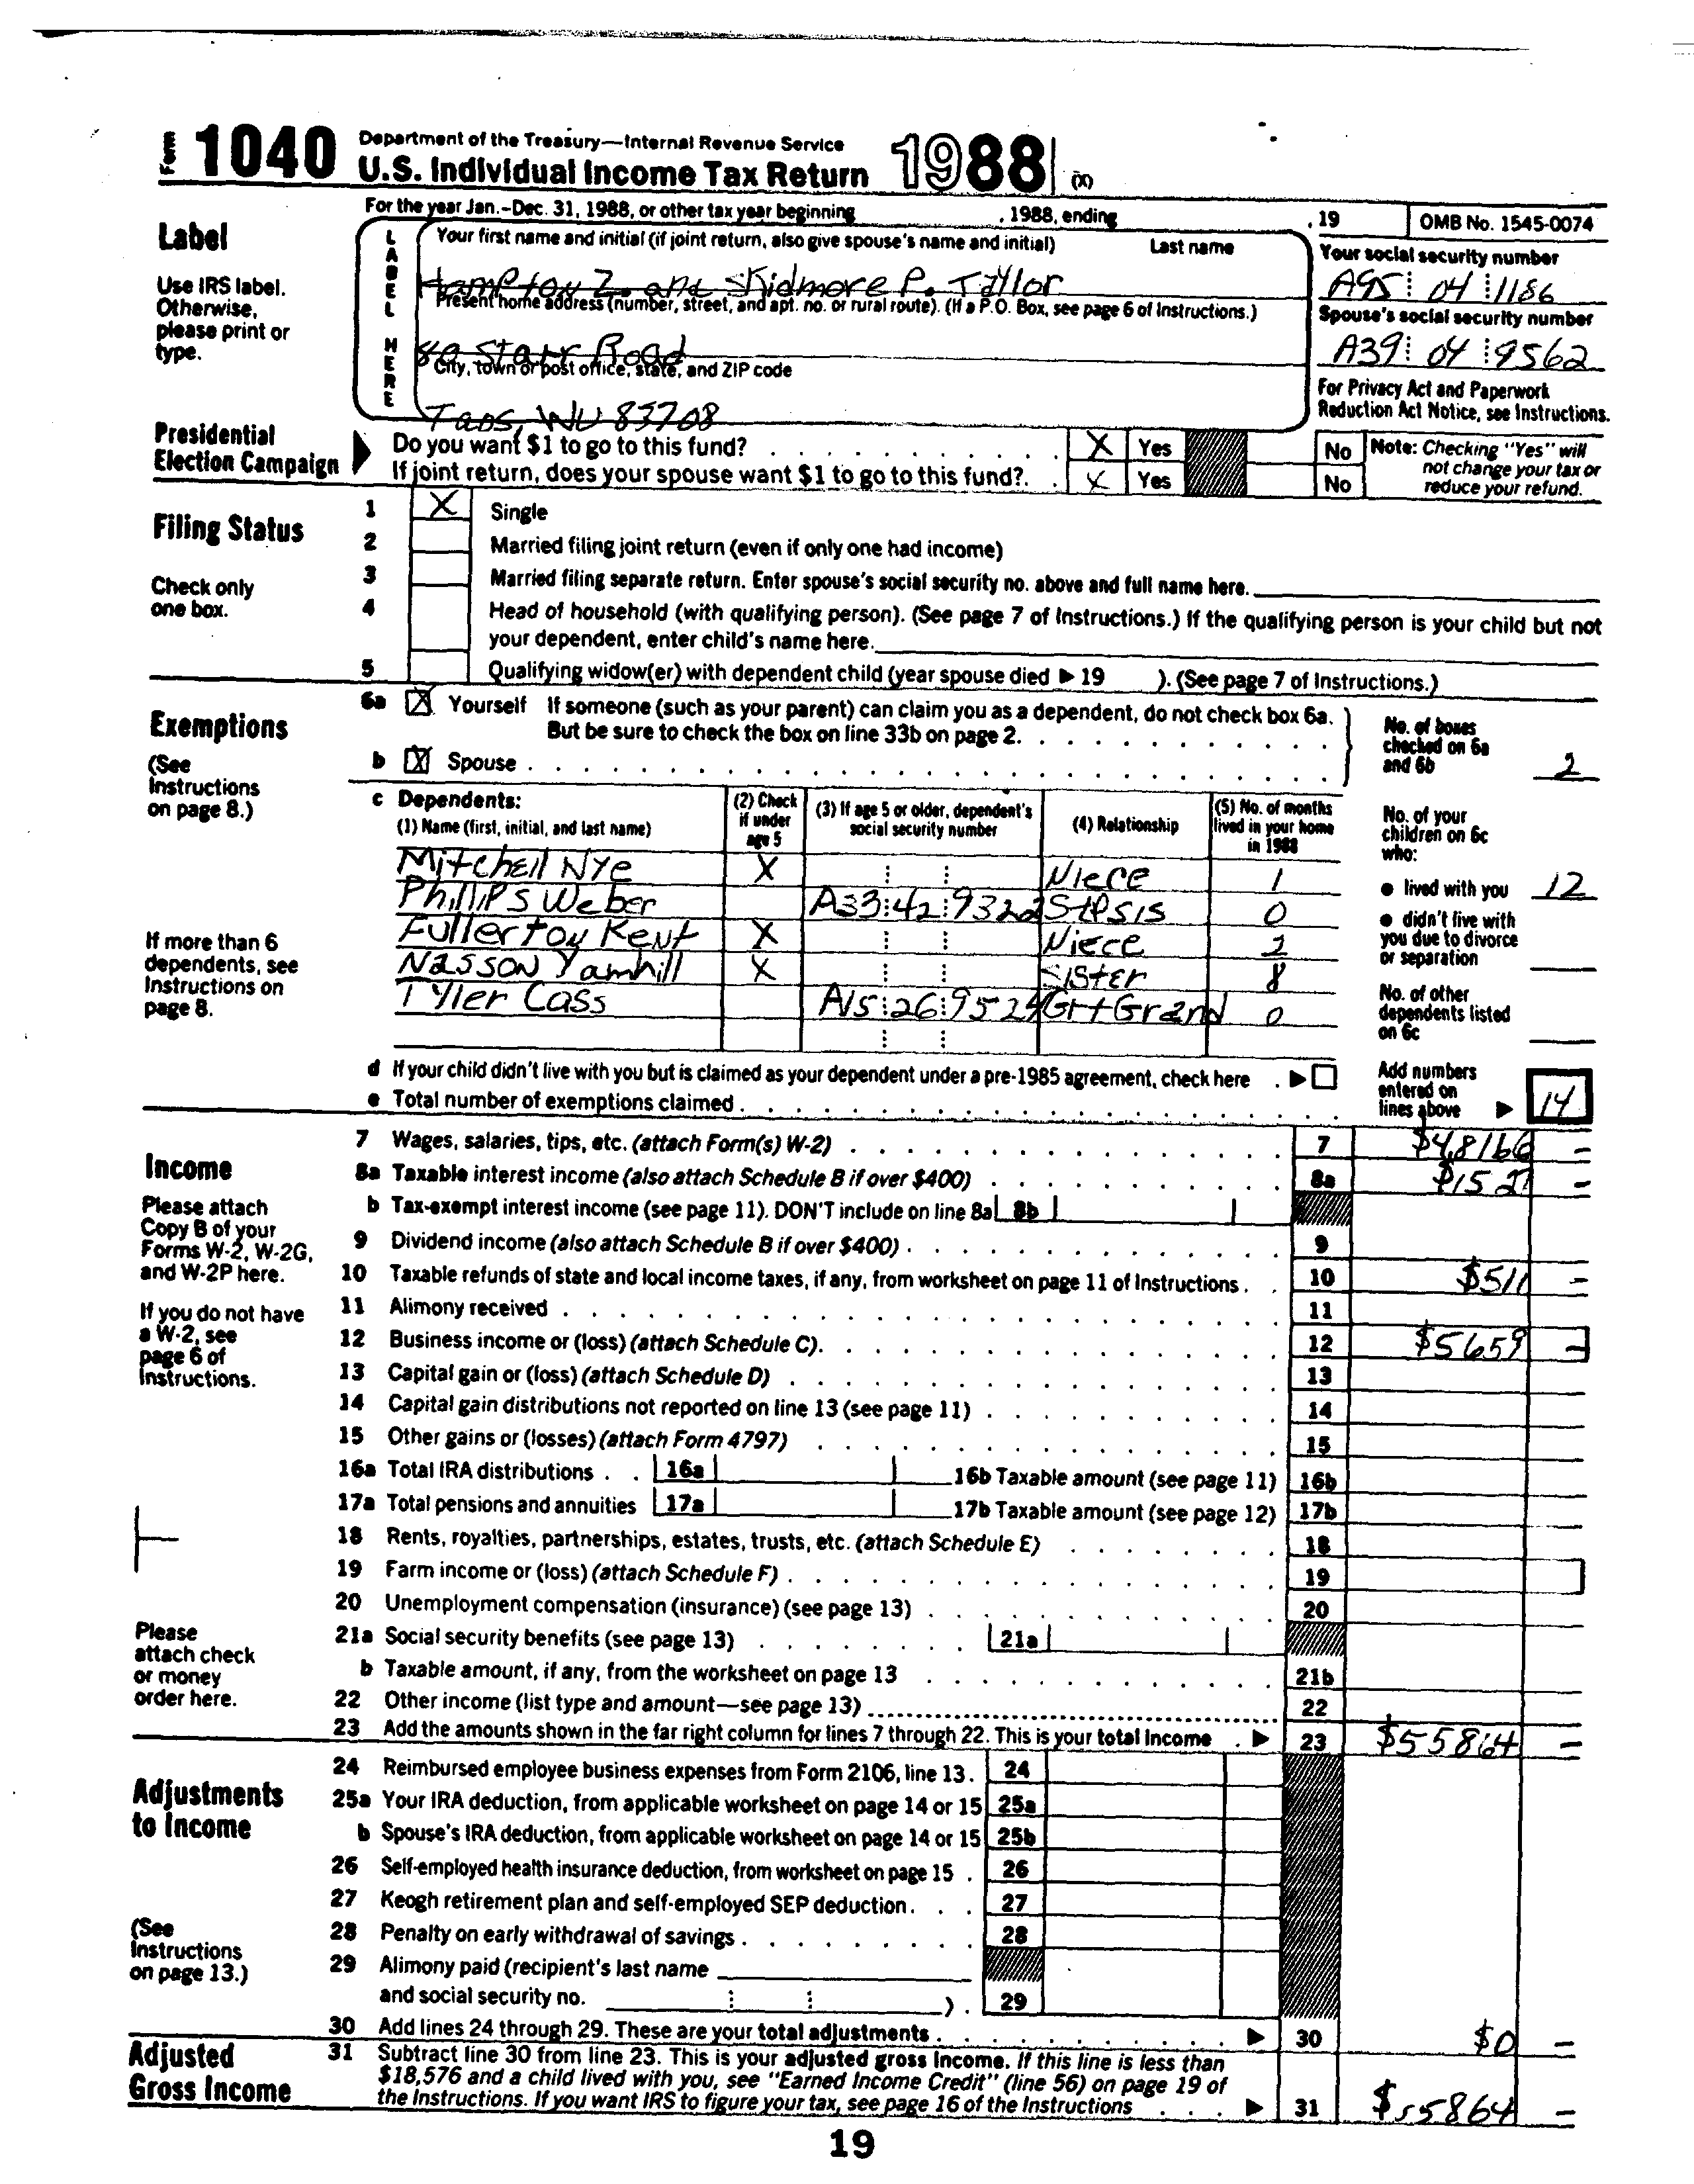 Form 1040 Department of the Treasury—Internal Revenue Service
U.S. Individual Income Tax Return 1988 (X)
For the year Jan.-Dec. 31, 1988, or other tax year beginning , 1988, ending , 19 OMB No. 1545-0074
Label
Use IRS label. Otherwise, please print or type.
LABEL HERE
Your first name and initial (if joint return, also give spouse's name and initial) Last name
Hampton Z. and Skidmore P. Taylor
Your social security number
A95 04 1186
Present home address (number, street, and apt. no. or rural route). (If a P.O. Box, see page 6 of Instructions.)
80 Starr Road
Spouse's social security number
A39 04 9562
City, town or post office, state, and ZIP code
Taos, WV 83708
For Privacy Act and Paperwork Reduction Act Notice, see Instructions.
Presidential Election Campaign
Do you want $1 to go to this fund? X Yes No
If joint return, does your spouse want $1 to go to this fund?. X Yes No
Note: Checking "Yes" will not change your tax or reduce your refund.
Filing Status
Check only one box.
1 X Single
2 Married filing joint return (even if only one had income)
3 Married filing separate return. Enter spouse's social security no. above and full name here.
4 Head of household (with qualifying person). (See page 7 of Instructions.) If the qualifying person is your child but not
your dependent, enter child's name here.
5 Qualifying widow(er) with dependent child (year spouse died ▶ 19 ). (See page 7 of Instructions.)
Exemptions
(See Instructions on page 8.)
6a X Yourself If someone (such as your parent) can claim you as a dependent, do not check box 6a.
But be sure to check the box on line 33b on page 2.
b X Spouse
No. of boxes checked on 6a and 6b 2
c Dependents:
(1) Name (first, initial, and last name) (2) Check if under age 5 (3) If age 5 or older, dependent's social security number (4) Relationship (5) No. of months lived in your home in 1988
Mitchell Nye X Niece 1
Phillips Weber A33 42 9322 Stpsis 0
Fullerton Kent X Niece 2
Nasson Yamhill X Sister 8
Tyler Cass A15 26 9524 Grt Grand 0
If more than 6 dependents, see Instructions on page 8.
No. of your children on 6c who:
● lived with you 12
● didn't live with you due to divorce or separation
No. of other dependents listed on 6c
d If your child didn't live with you but is claimed as your dependent under a pre-1985 agreement, check here . ▶
e Total number of exemptions claimed
Add numbers entered on lines above ▶ 14
Income
Please attach Copy B of your Forms W-2, W-2G, and W-2P here.
If you do not have a W-2, see page 6 of Instructions.
Please attach check or money order here.
7 Wages, salaries, tips, etc. (attach Form(s) W-2) 7 $48166 –
8a Taxable interest income (also attach Schedule B if over $400) 8a $1527 –
b Tax-exempt interest income (see page 11). DON'T include on line 8a 8b
9 Dividend income (also attach Schedule B if over $400) 9
10 Taxable refunds of state and local income taxes, if any, from worksheet on page 11 of Instructions . 10 $511 –
11 Alimony received 11
12 Business income or (loss) (attach Schedule C). 12 $5659 –
13 Capital gain or (loss) (attach Schedule D) 13
14 Capital gain distributions not reported on line 13 (see page 11) 14
15 Other gains or (losses) (attach Form 4797) 15
16a Total IRA distributions . . 16a 16b Taxable amount (see page 11) 16b
17a Total pensions and annuities 17a 17b Taxable amount (see page 12) 17b
18 Rents, royalties, partnerships, estates, trusts, etc. (attach Schedule E) 18
19 Farm income or (loss) (attach Schedule F) 19
20 Unemployment compensation (insurance) (see page 13) 20
21a Social security benefits (see page 13) 21a
b Taxable amount, if any, from the worksheet on page 13 21b
22 Other income (list type and amount—see page 13) 22
23 Add the amounts shown in the far right column for lines 7 through 22. This is your total income . ▶ 23 $55864 –
Adjustments to Income
(See Instructions on page 13.)
24 Reimbursed employee business expenses from Form 2106, line 13. 24
25a Your IRA deduction, from applicable worksheet on page 14 or 15 25a
b Spouse's IRA deduction, from applicable worksheet on page 14 or 15 25b
26 Self-employed health insurance deduction, from worksheet on page 15 . 26
27 Keogh retirement plan and self-employed SEP deduction. . . 27
28 Penalty on early withdrawal of savings 28
29 Alimony paid (recipient's last name
and social security no. ) . 29
30 Add lines 24 through 29. These are your total adjustments ▶ 30 $0 –
Adjusted Gross Income
31 Subtract line 30 from line 23. This is your adjusted gross income. If this line is less than
$18,576 and a child lived with you, see "Earned Income Credit" (line 56) on page 19 of
the Instructions. If you want IRS to figure your tax, see page 16 of the Instructions . . . ▶ 31 $55864 –
19